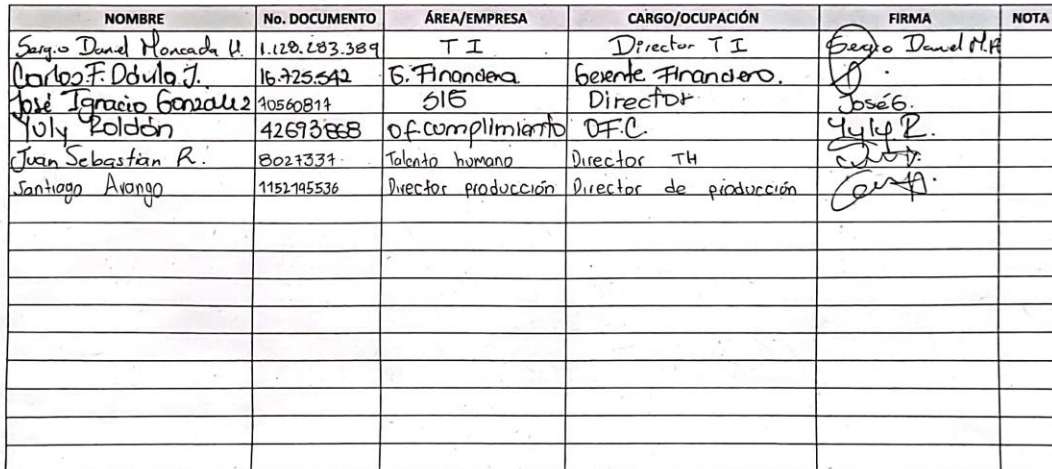 NOMBRE No. DOCUMENTO ÁREA/EMPRESA CARGO/OCUPACIÓN FIRMA NOTA
Sergio Daniel Moncada U. 1.128.283.389 TI Director TI Sergio Daniel M.
Carlos F. Dávila J. 16.725.542 G. Financiera Gerente Financiero.
José Ignacio González 70560817 SIG Director José G.
Yuly Roldán 42693868 of. cumplimiento OF.C. Yuly R.
Juan Sebastian R. 8027337 Talento humano Director TH
Santiago Arango 1152195536 Director producción Director de producción